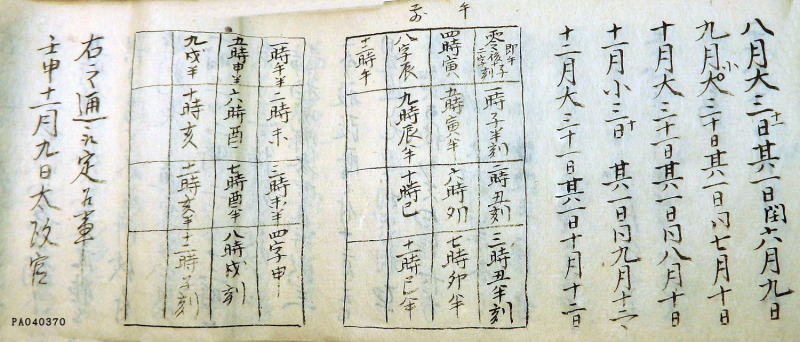 八月大三十一日 其一日 閏六月九日
九月小三十日 其一日 同七月十日
十月大三十一日 其一日 同八月十日
十一月小三十日 其一日 同九月十二
十二月大三十一日 其一日 十月十二日
午
零時 即午後子ノ刻
一時 子半刻
二時 丑刻
三時 丑半刻
四時 寅
五時 寅半
六時 卯
七時 卯半
八字 辰
九時 辰半
十時 巳
十一時 巳半
十二時 午
一時 午半
二時 未
三時 未半
四字 申
五時 申半
六時 酉
七時 酉半
八時 戌刻
九 戌半
十時 亥
十一時 亥半
十二時 子刻
右之通被定候事
壬申十一月九日 太政官
PA040370